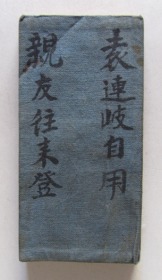 袁連岐自用
親友往来登